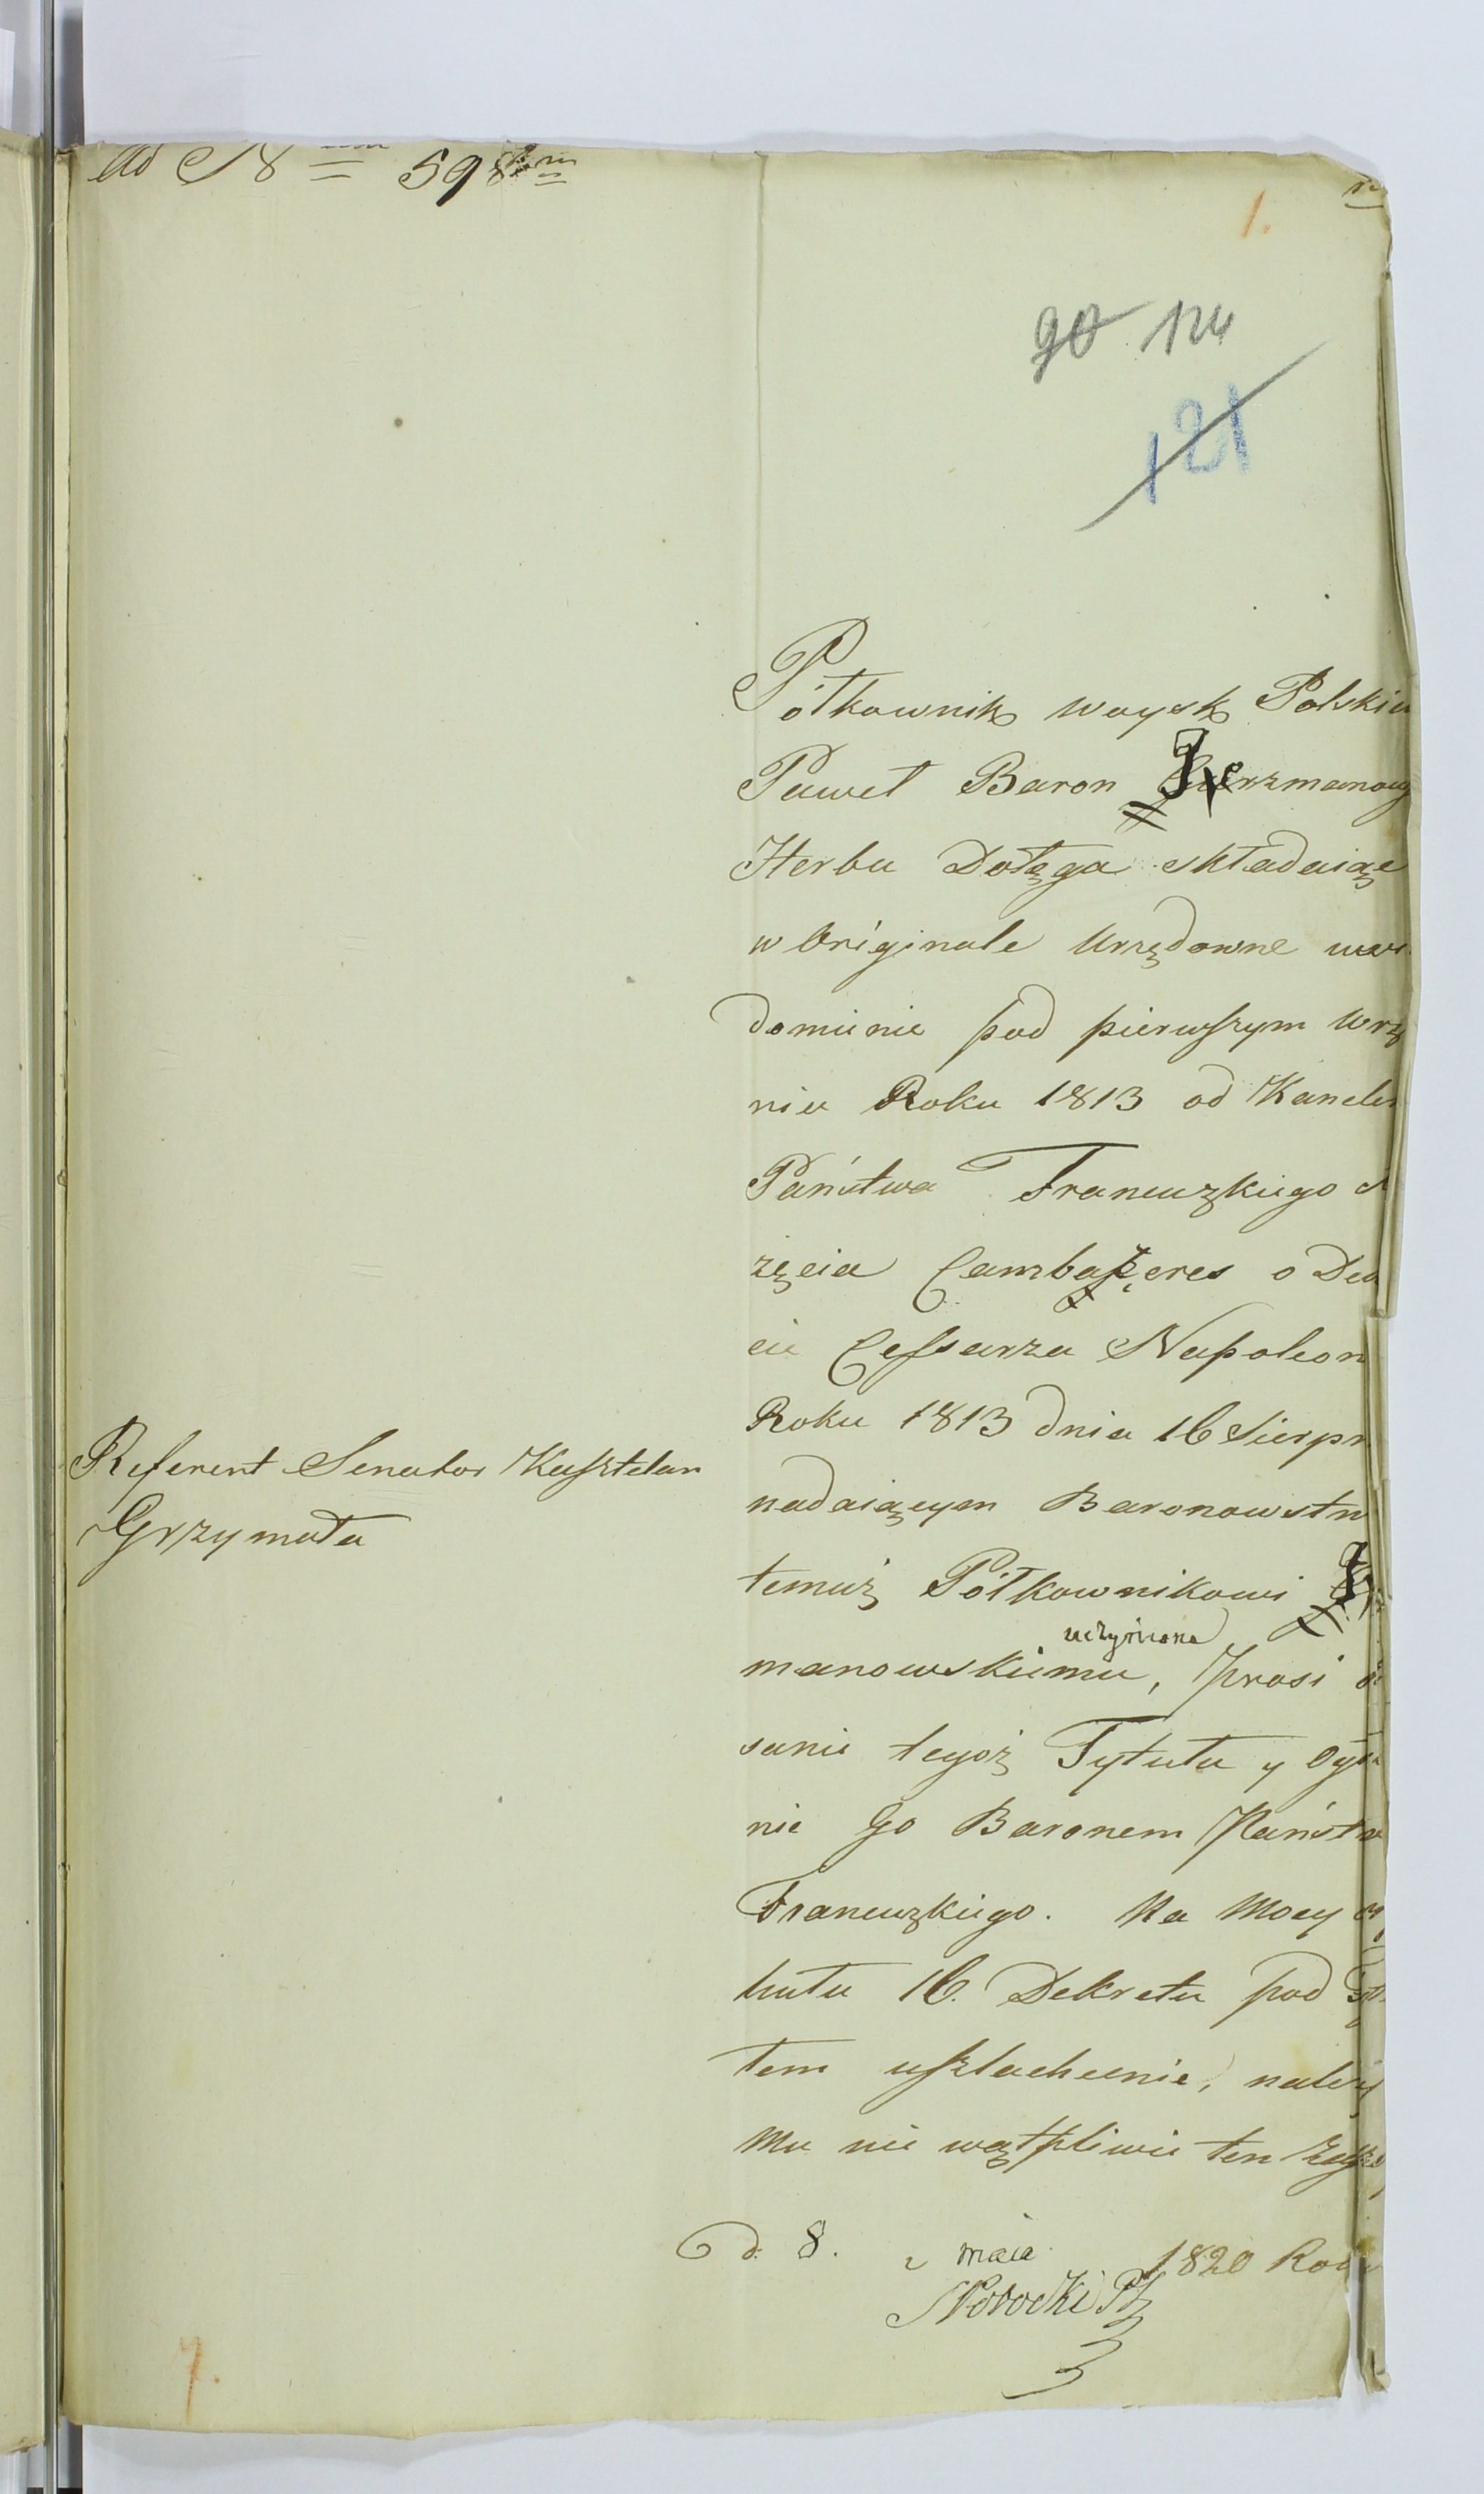 Ad N 598
1.
90 124
121
Półkownik woysk Polskic
Paweł Baron Jerzmanows
Herbu Dołęga składaiąc
w Originale Urzędowne uwi
domienie pod pierwszym Wrz
nia Roku 1813 od Kancler
Państwa Francuzkiego
zęcia Cambaceres o De
cie Cessarza Napoleon
Roku 1813 dnia 16 Sierpn
nadaiącym Baronowstw
temuż Półkownikowi
uczynione
manowskiemu, prosi
sanie tegoż Tytułu y Ogł
nie Go Baronem Państw
Francuzkiego. Na Mocy
kułu 16. Dekretu pod
tem uszlachcenie, należy
Mu nie wątpliwie ten
Referent Senator Kasztelan
Grzymała
d. 8. maia 1820 Roku
7.